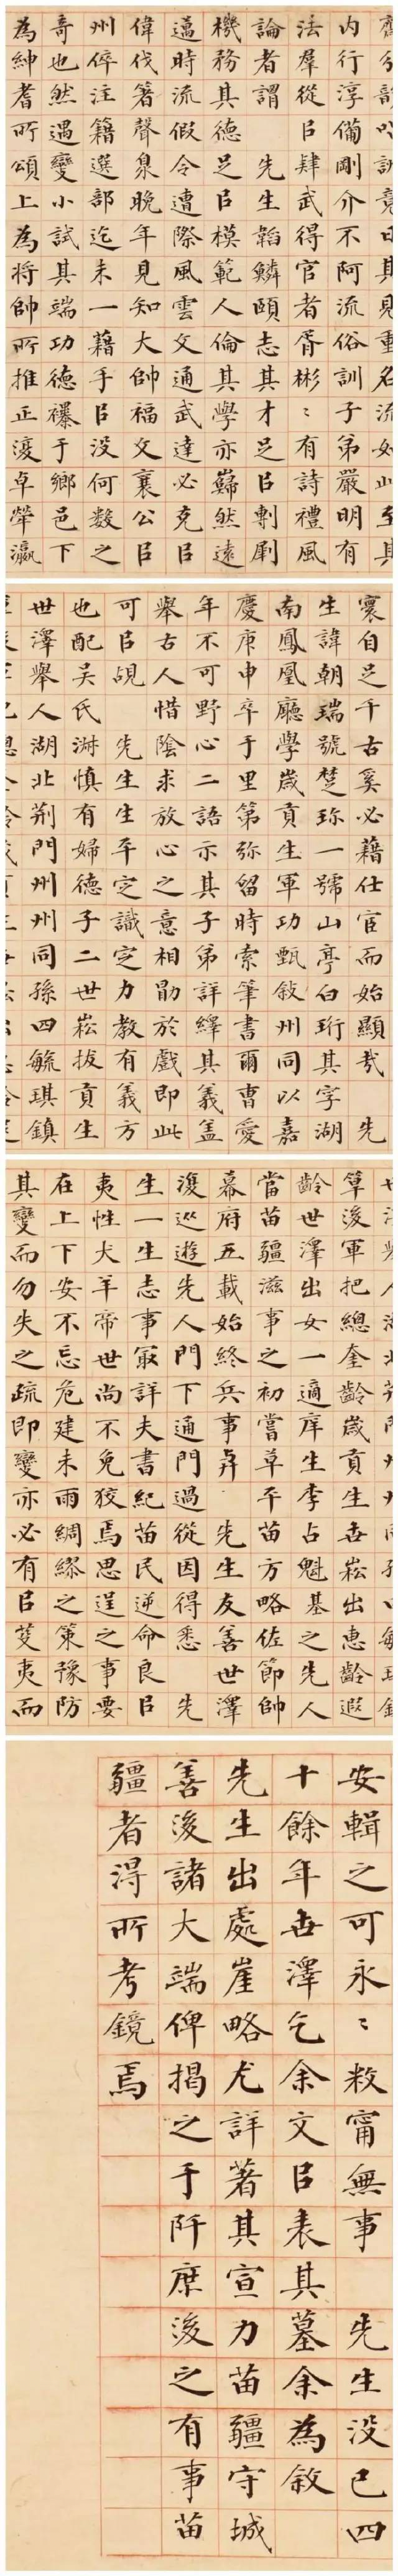 内行淳備剛介不阿流俗訓子弟嚴明有
法羣從㠯肄武得官者胥彬〻有詩禮風
論者謂 先生韜鱗頤志其才足㠯剸劇
機務其德足㠯模範人倫其學亦巋然遠
邁時流假令遭際風雲文通武達必克㠯
偉伐箸聲泉晚年見知大帥福文襄公㠯
州倅注籍選部迄未一藉手㠯没何數之
奇也然遇變小試其端功德襮于鄉邑下
為紳耆所頌上為将帥所推正濅卓犖瀛
寰自足千古奚必藉仕宦而始顯㢤 先
生諱朝瑞號楚珎一號山亭白珩其字湖
南鳳凰廳學歲貢生軍功甄敘州同以嘉
慶庚申卒于里第弥留時索筆書爾曹愛
年不可野心二語示其子弟詳繹其義盖
舉古人惜陰求放心之意相勖於戲即此
可㠯覘 先生生平定識定力教有義方
也配吴氏淋慎有婦德子二世崧拔貢生
世澤舉人湖北荆門州州同孫四毓琪鎮
筸後軍把總奎齡歲貢生世崧出惠齡遐
齡世澤出女一適庠生李占魁基之先人
當苗疆滋事之初嘗草平苗方略佐節帥
幕府五載始終兵事弆 先生友善世澤
濅巡遊先人門下通門過從因得悉 先
生一生志事冣詳夫書紀苗民逆命良㠯
夷性犬羊帝世尚不免狡焉思逞之事要
在上下安不忘危建未雨綢繆之策豫防
其變而勿失之疏即變亦必有㠯芟夷而
安輯之可永〻敉甯無事 先生没已四
十餘年世澤乞余文㠯表其墓余為敘
先生出處崖略尤詳著其宣力苗疆守城
善後諸大端俾揭之于阡庶後之有事苗
疆者淂所考鏡焉